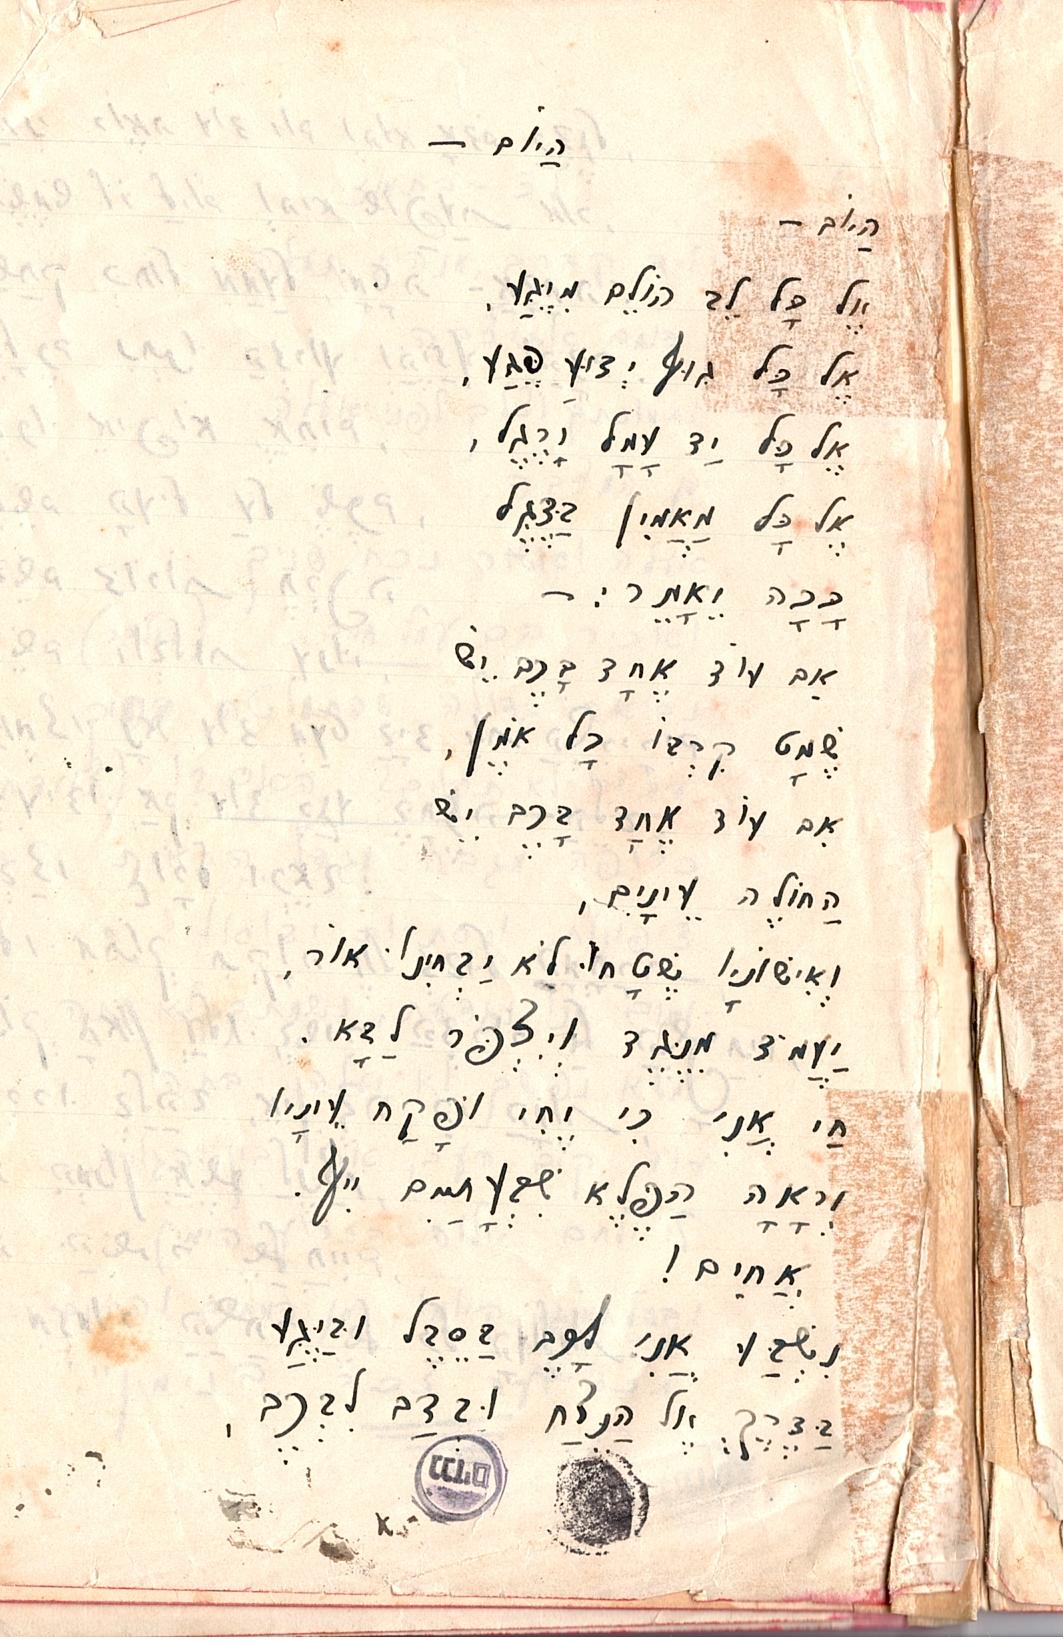 הַיּוֹם –
הַיּוֹם –
אֶל כָּל לֵב הוֹלֵם מִיֶּגַע,
אֶל כָּל גּוּף יְדוּעַ פֶּגַע,
אֶל כָּל יַד עָמָל וָרֶגֶל,
אֶל כָּל מַאֲמִין בַּדֶּגֶל
כָּכָה יֵאָמֵר: –
אִם עוֹד אֶחָד בָּכֶם יֵשׁ
שֶׁמָּט קִרְבּוֹ כָּל אֹמֶן,
אִם עוֹד אֶחָד בָּכֶם יֵשׁ
הַחוֹלֶה עֵינָיִם,
וְאִישׁוֹנָיו שֶׁטָּחוּ לֹא יַבְחִינוּ אוֹר,
יַעֲמֹד מִנֶּגֶד וְיִצְפֹּר לַבָּא.
חַי אֲנִי כִּי יֶחִי וּפָקַח עֵינָיו
וְרָאָה הַפֶּלֶא שִׁבְעָתַיִם יִיף.
אַחִים!
נִשְׁבַּע אֲנִי לָכֶם בַּסֵּבֶל וּבַיֶּגַע
בַּדֶּרֶךְ אֶל הַנֶּצַח וּבְדַם לִבְּכֶם,